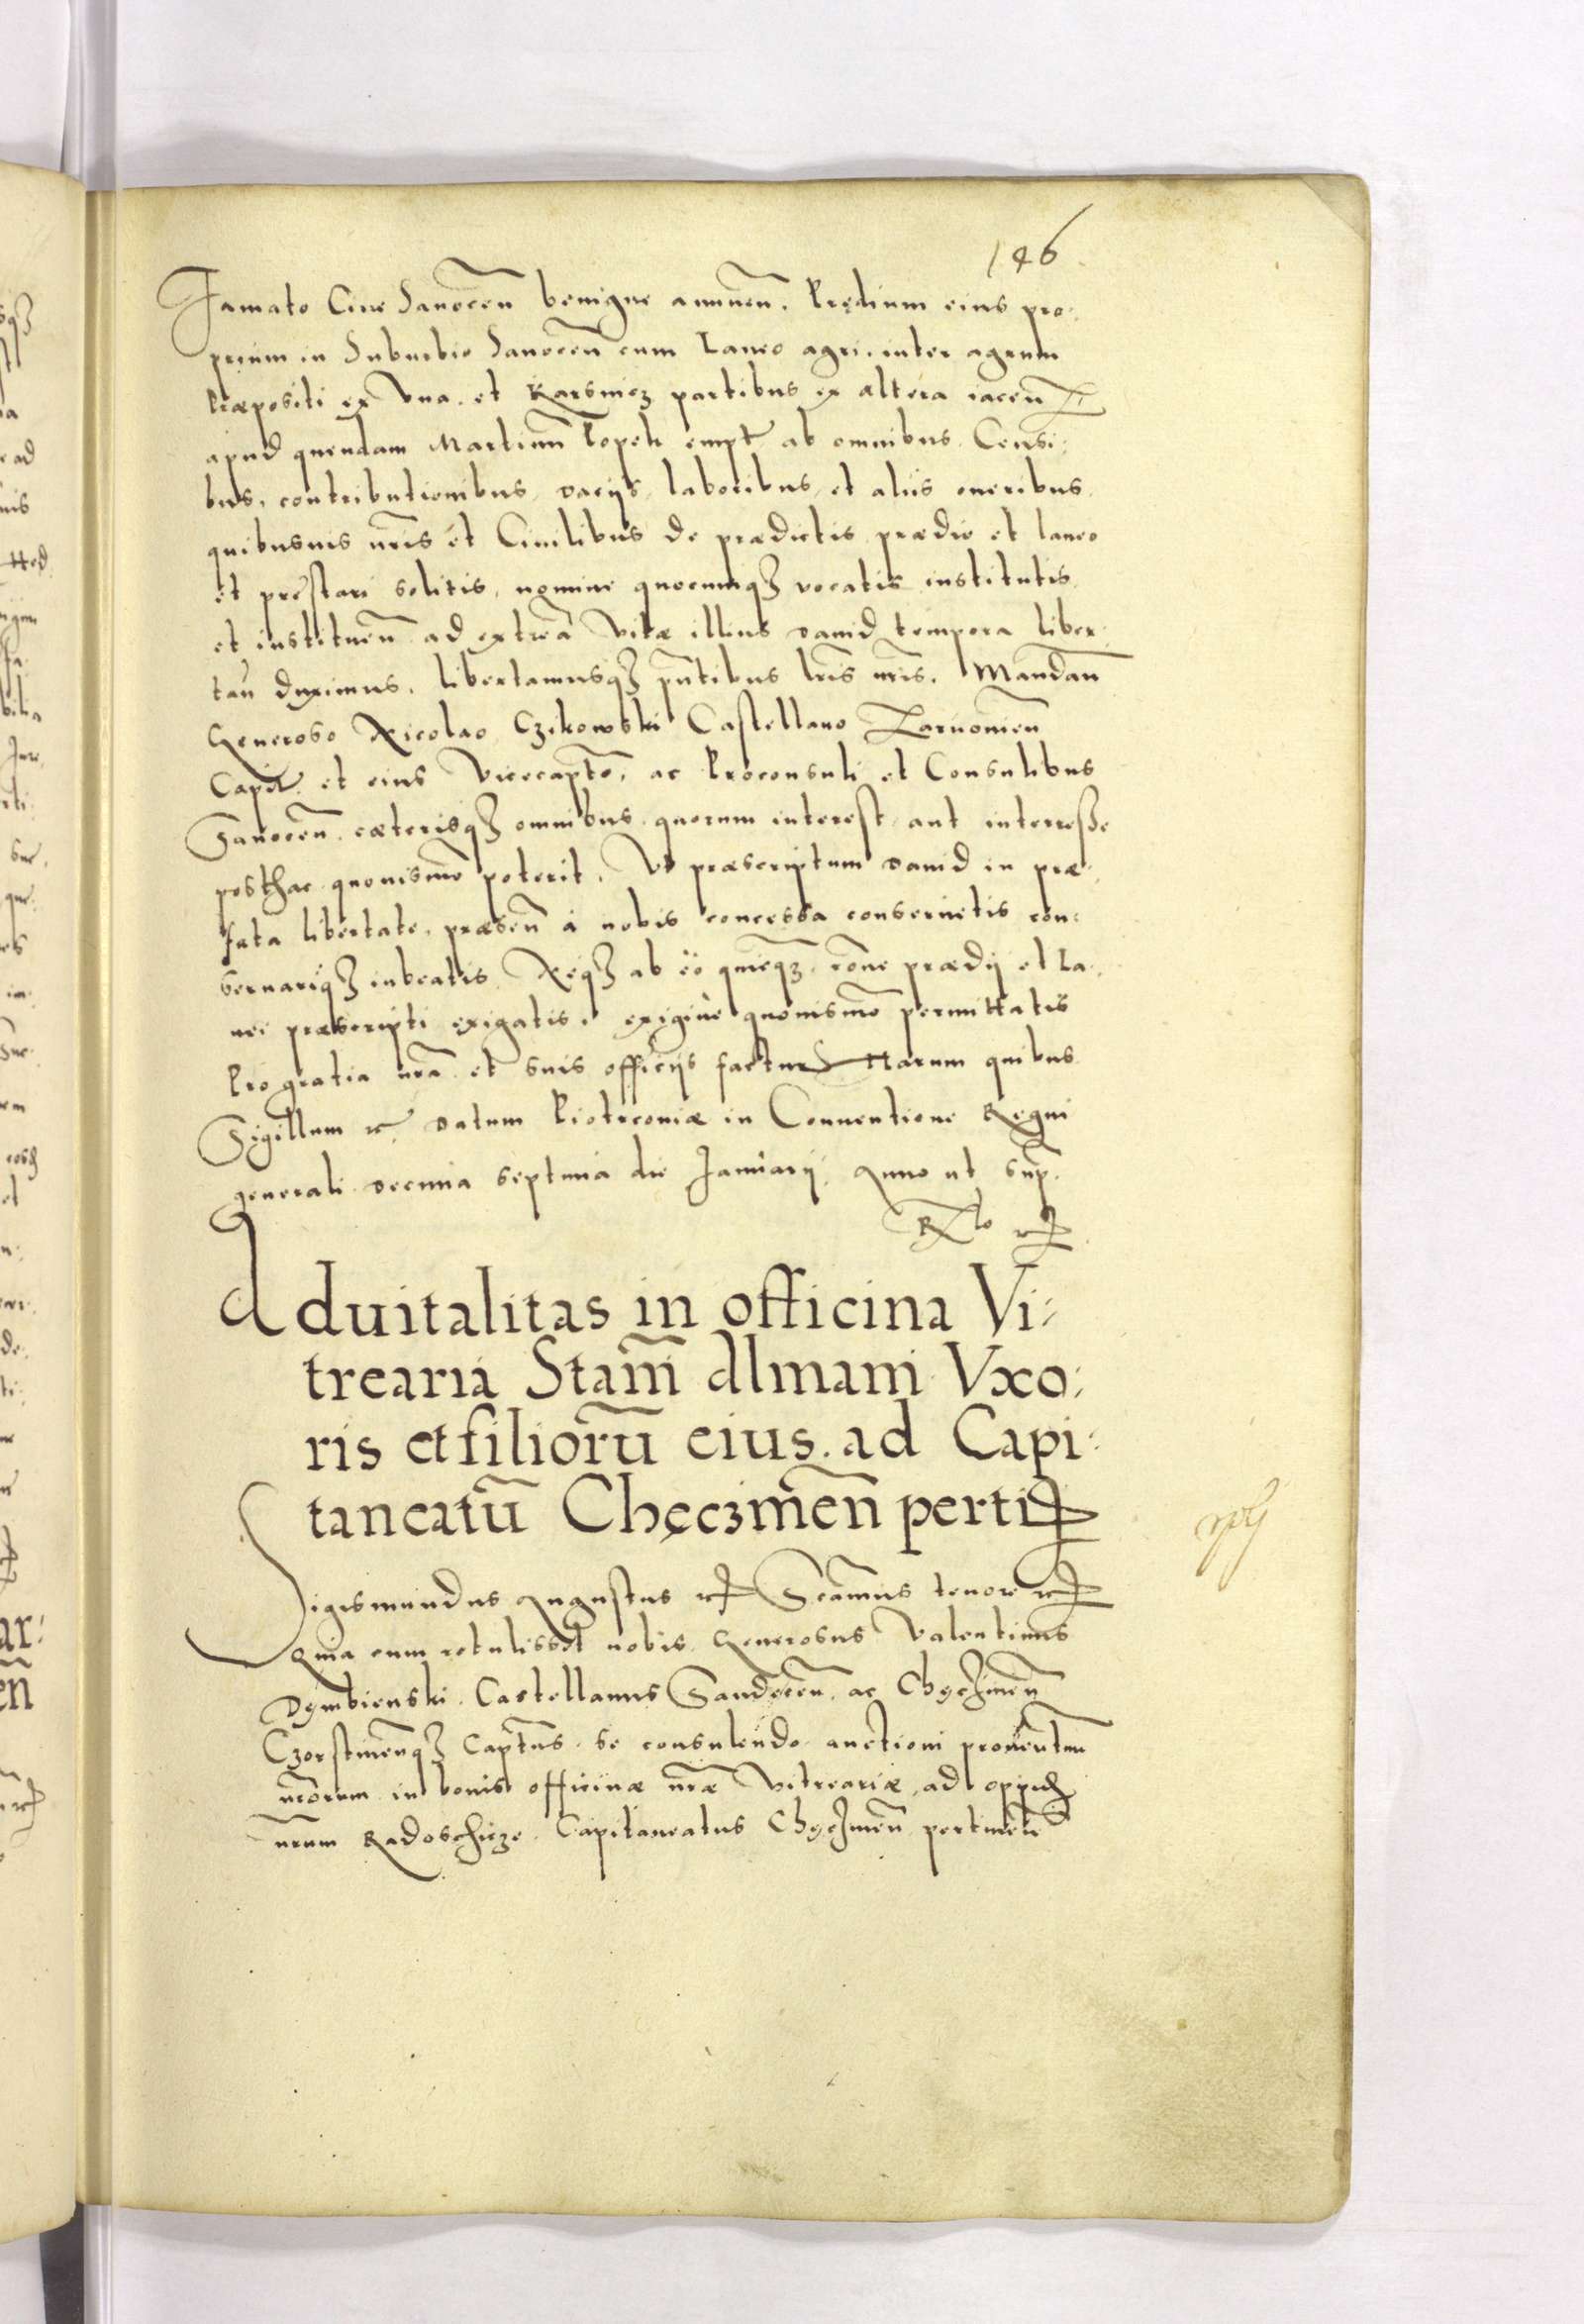 146
Famato Ciue Sanocen̄ benigne annuen̄. Prędium eius pro:
prium in Suburbio Sanocen̄ cum Laneo agri, inter agrum
Præpositi ex Vna et Karsnicz partibus ex altera iacen̄
apud quendam Martinū Popek empt̄ ab omnibus Censi:
bus, contributionibus, dacijs, laboribus, et aliis oneribus
quibusuis nr̄is et Ciuilibus de prædictis prædio et laneo
et præstari solitis, nomine quocumq₃ vocatis institutis
et instituen̄ ad extrēa Vitæ illius Dauid tempora liber:
tan̄ duximus, libertamusq₃ pn̄tibus lr̄is nr̄is. Mandan̄
Generoso Nicolao Czikowski Castellano
Capit. et eius Vicecaptō, ac Proconsuli et Consulibus
Sanocen̄ cæterisq₃ omnibus quorum interest aut interesse
posthac quouismō poterit, Vt præscriptum Dauid in præ:
fata libertate, præsen̄ á nobis concessa conseruetis con:
seruariq₃ iubeatis Néq₃ ab eo quicq̄₃ rōne prædij et La:
nei præscripti exigatis, exigiue quouismō permittatis
Pro gratia nr̄a et suis officijs factur Harum quibus
Sigillum rc̄. Datum Piotrconiæ in Conuentione Regni
generali decima septima die Januarij Anno ut sup̄.
Aduitalitas in officina Vi:
trearia Stam̄ Almani Vxo:
ris et filiorū eius. ad Capi:
taneatū Chęczinen̄ perti
Sigismundus Augustus rc̄ Sɢam̄us tenore rc̄
Quia cum retulisset nobis Generosus Valentinus
Dembienski Castellanus Sandecen̄ ac Chęczinen̄
Czorstinen̄q₃ Captn̄s, se consulendo auctioni prouentuū
nr̄orum in bonis officinæ nr̄æ Vitreariæ, ad oppid
nr̄um Radoschicze Capitaneatus Chęczinen̄ pertinen̄